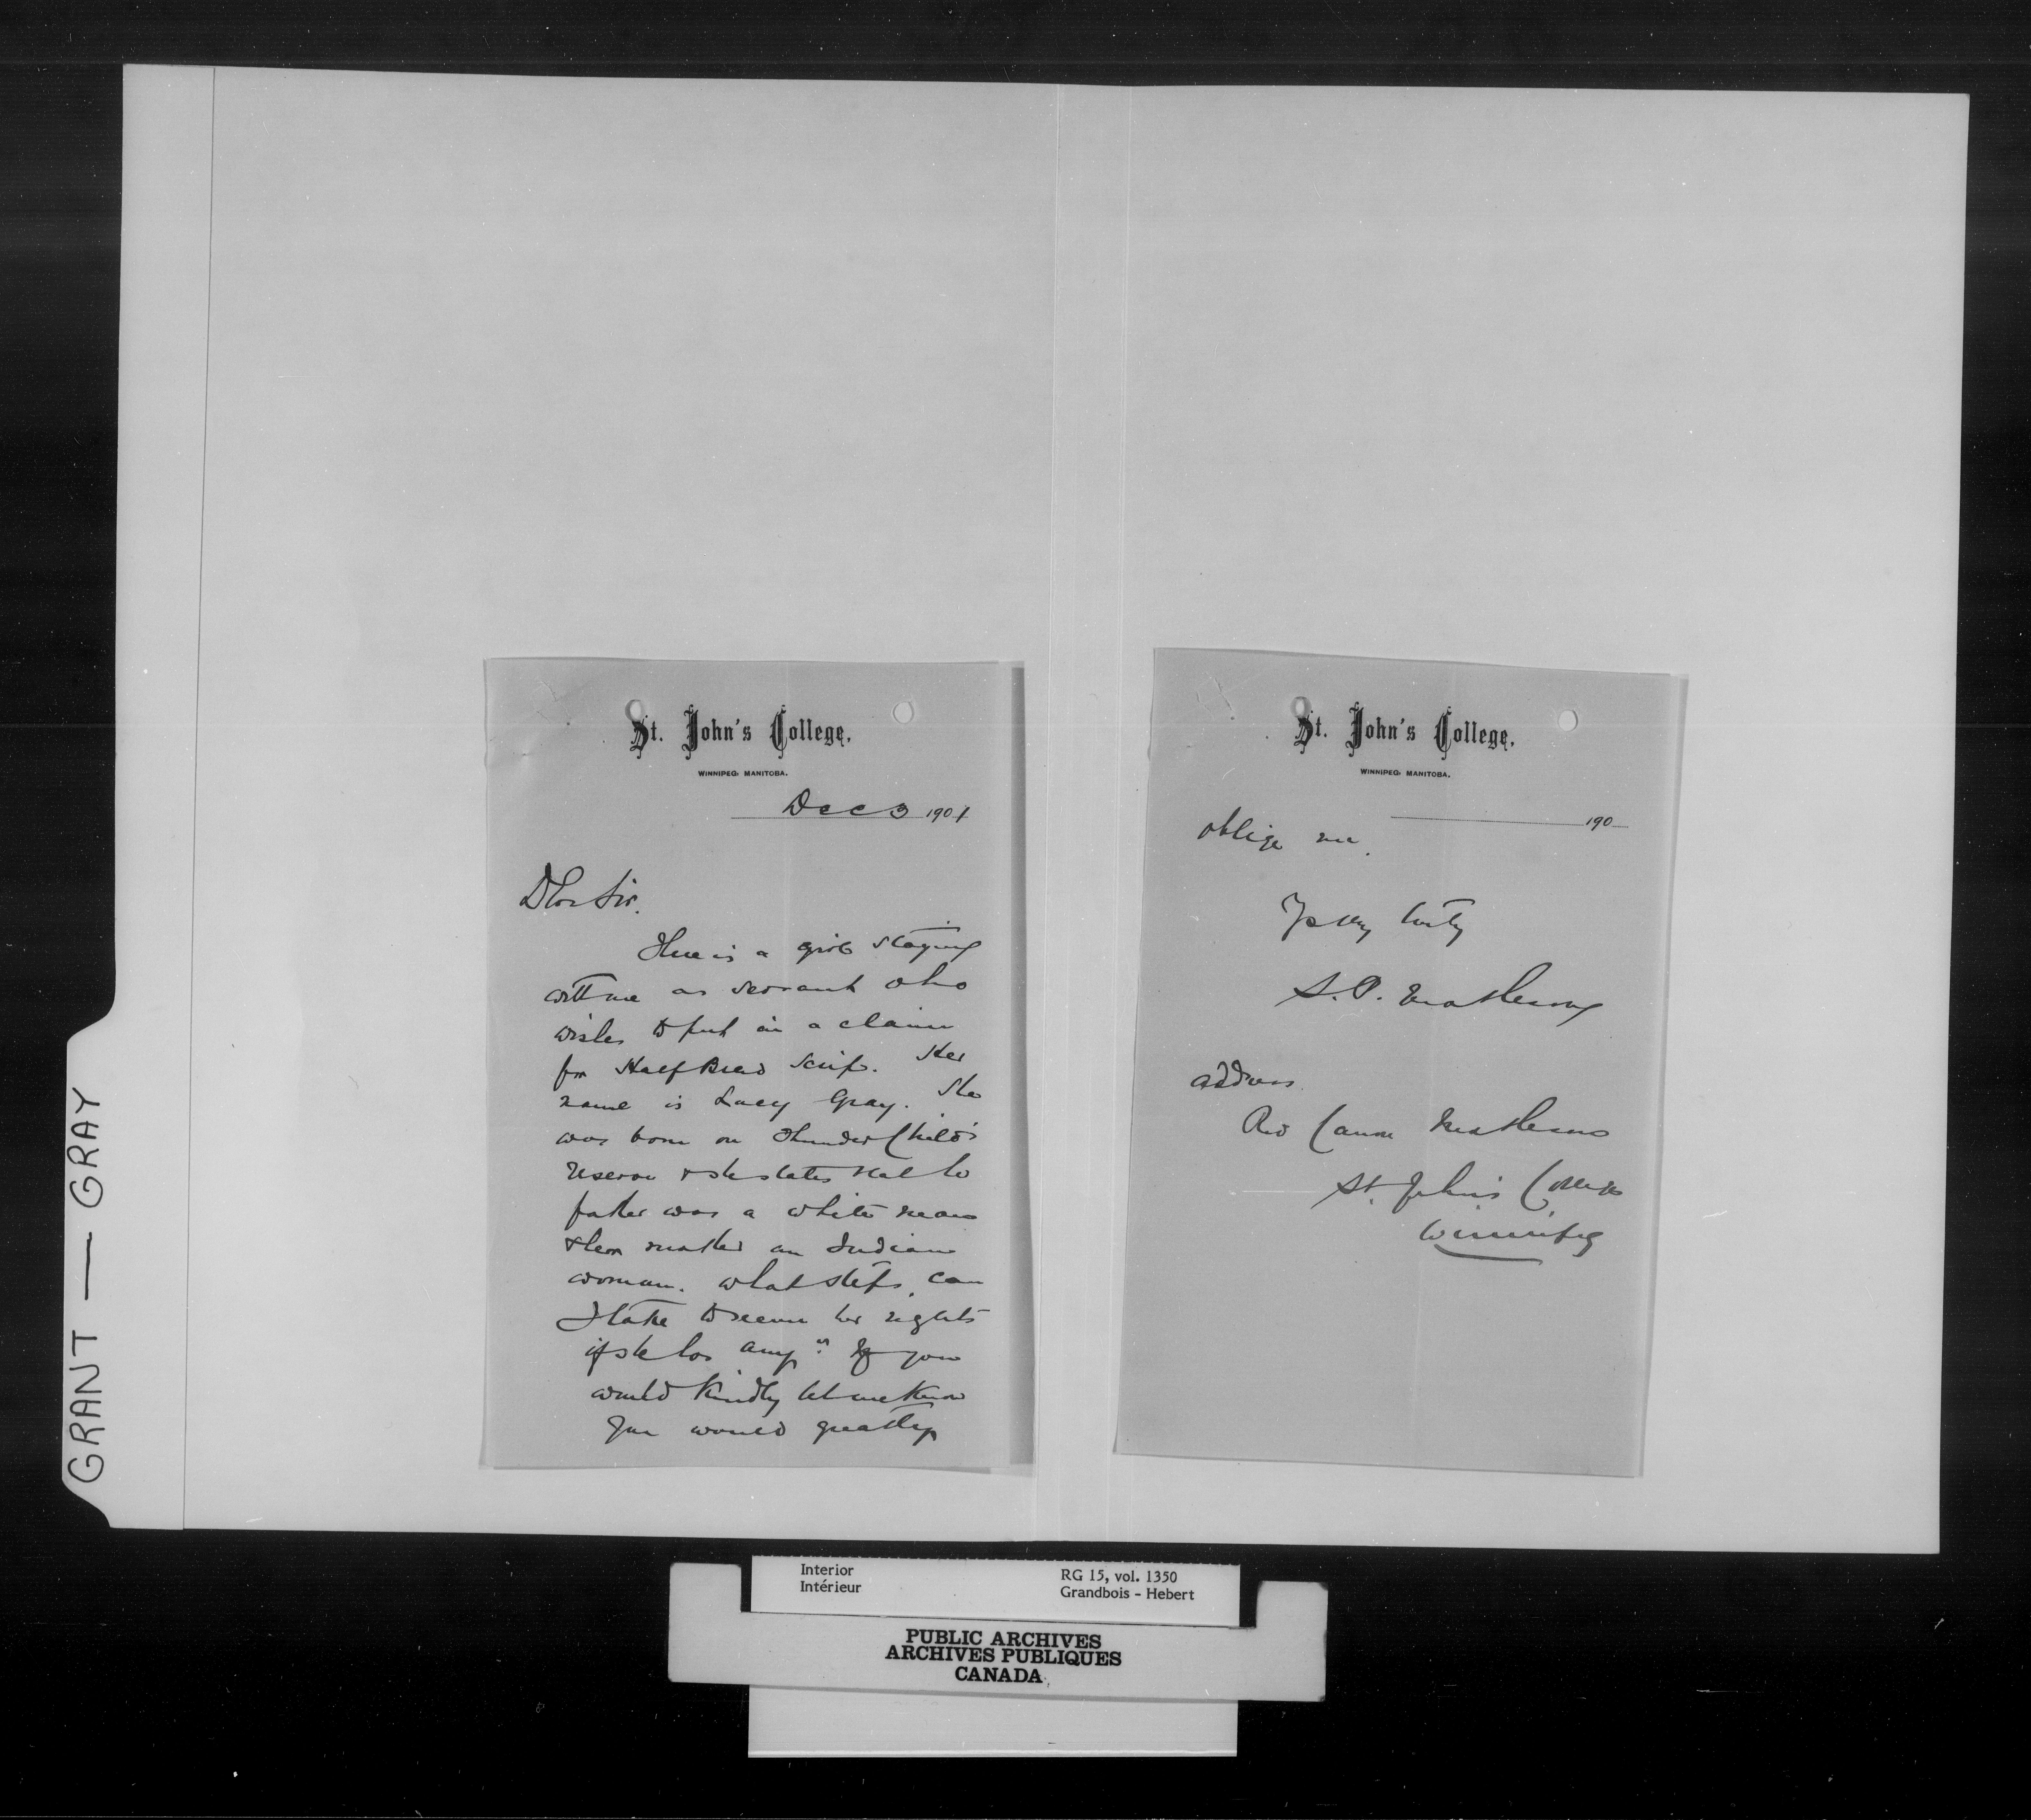 GRANT — GRAY
St. John's College,
WINNIPEG, MANITOBA.
Dec 3 1901
Dear Sir.
There is a girl staying
with me as servant who
wishes to put in a claim
for Half Breed Scrip. Her
name is Lucy Gray. She
was born on Thunder Child's
reserve & she states that her
father was a white man
& her mother an Indian
woman. What steps can
I take to secure her rights
if she has any? If you
would kindly let me know
you would greatly
St. John's College,
WINNIPEG, MANITOBA.
190
oblige me.
Yrs very truly
S. P. Matheson
address
Rev Canon Matheson
St. John's College
Winnipeg
Interior
Intérieur
RG 15, vol. 1350
Grandbois - Hebert
PUBLIC ARCHIVES
ARCHIVES PUBLIQUES
CANADA